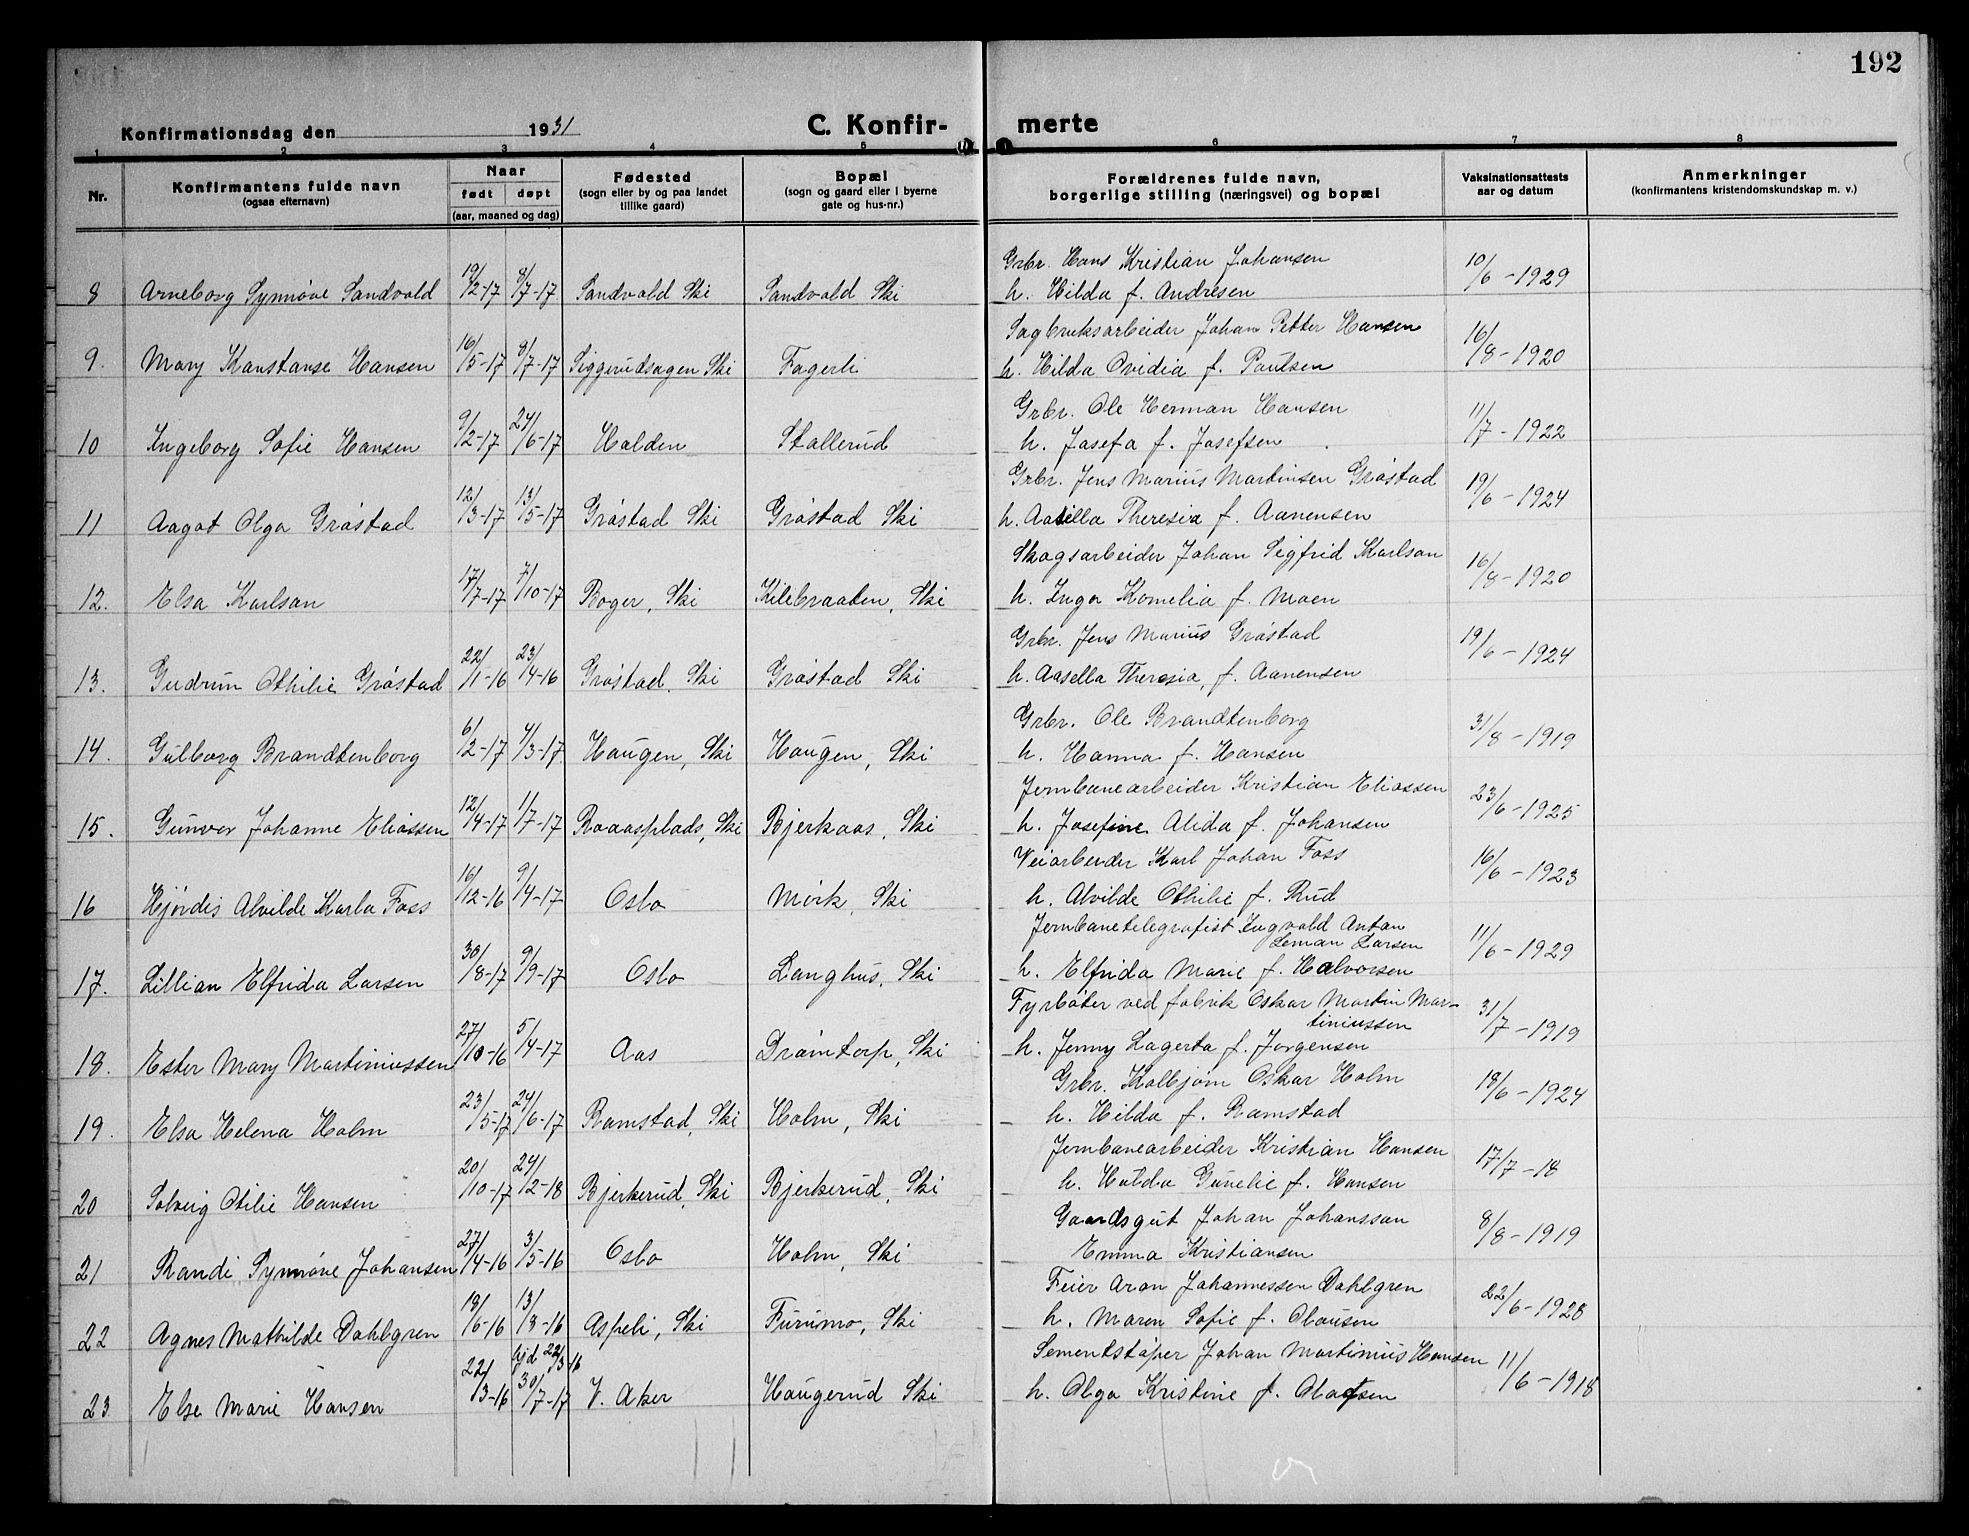 192
Konfirmationsdag den 1931 C. Konfir- merte
1 2 3 4 5 6 7 8
Nr. Konfirmantens fulde navn (ogsaa efternavn) Naar født døpt (aar, maaned og dag) Fødested (sogn eller by og paa landet tillike gaard) Bopæl (sogn og gaard eller i byerne gate og hus-nr.) Forældrenes fulde navn, borgerlige stilling (næringsvei) og bopæl Vaksinationsattests aar og datum Anmerkninger (konfirmantens kristendomskundskap m. v.)
Grbr. Hans Kristian Johansen
8 Arneborg Synnøve Sandvold 19/2-17 8/7-17 Sandvold Ski Sandvold Ski h. Hilda f. Andresen 10/6-1929
Sagbruksarbeider Johan Petter Hansen
9. Mary Konstanse Hansen 16/5-17 8/7-17 Siggerudsagen Ski Fagerli h. Hilda Ovidia f. Paulsen 16/8-1920
Grbr. Ole Herman Hansen
10 Ingeborg Sofie Hansen 9/2-17 24/6-17 Halden Stallerud h. Josefa f. Josefsen 11/7-1922
Grbr. Jens Marius Martinsen Gråstad
11 Aagot Olga Gråstad 12/3-17 13/5-17 Gråstad Ski Gråstad Ski h. Aasella Theresia f. Aanensen 19/6-1924
Skogsarbeider Johan Sigfrid Karlson
12. Elsa Karlson 17/7-17 7/10-17 Boger, Ski Kilebraaten, Ski h. Inga Kornelia f. Moen 16/8-1920
Grbr. Jens Marius Gråstad
13. Gudrun Othilie Gråstad 22/1-16 23/4-16 Gråstad, Ski Gråstad Ski h. Aasella Theresia, f. Aanensen 19/6-1924
Grbr. Ole Brandtenborg
14. Gulborg Brandtenborg 6/2-17 4/3-17 Haugen, Ski Haugen, Ski h. Hanna f. Hansen 31/8-1919
Jernbanearbeider Kristian Eliassen
15. Gunvor Johanne Eliassen 12/4-17 1/7-17 Raaasplads, Ski Bjerkaas, Ski h. Josefine Alida f. Johansen 23/6-1925
Veiarbeider Karl Johan Foss
16 Hjørdis Alvilde Karla Foss 16/12-16 9/4-17 Oslo Mørk, Ski h. Alvilde Othilie f. Rud 16/6-1923
Jernbanetelegrafist Ingvald Anton
Leman Larsen
17. Lillian Elfrida Larsen 30/8-17 9/9-17 Oslo Langhus, Ski h. Elfrida Marie f. Halvorsen 11/6-1929
Fyrbøter ved fabrik Oskar Martin Mar-
tiniussen
18. Ester Mary Martiniussen 27/10-16 5/4-17 Aas Drømtorp, Ski h. Jenny Lagerta f. Jørgensen 31/7-1919
Grbr. Kolbjørn Oskar Holm
19. Elsa Helena Holm 23/5-17 24/6-17 Ramstad, Ski Holm, Ski h. Hilda f. Ramstad 18/6-1924
Jernbanearbeider Kristian Hansen
20 Solveig Otilie Hansen 20/10-17 24/2-18 Bjerkerud, Ski Bjerkerud, Ski h. Hulda Gunelie f. Hansen 17/7-18
Gaardsgut Johan Johansson
21 Randi Synnøve Johansen 27/4-16 3/5-16 Oslo Holm, Ski Emma Kristiansen 8/8-1919
Feier Aron Johannessen Dahlgren
22 Agnes Mathilde Dahlgren 18/6-16 13/8-16 Aspeli, Ski Furumo, Ski h. Maren Sofie f. Olausen 22/6-1928
hjd 22/3-16
Sementstøper Johan Martinius Hansen
23 Else Marie Hansen 22/3-16 30/7-17 V. Aker Haugerud Ski h. Olga Kristine f. Olafsen 11/6-1918